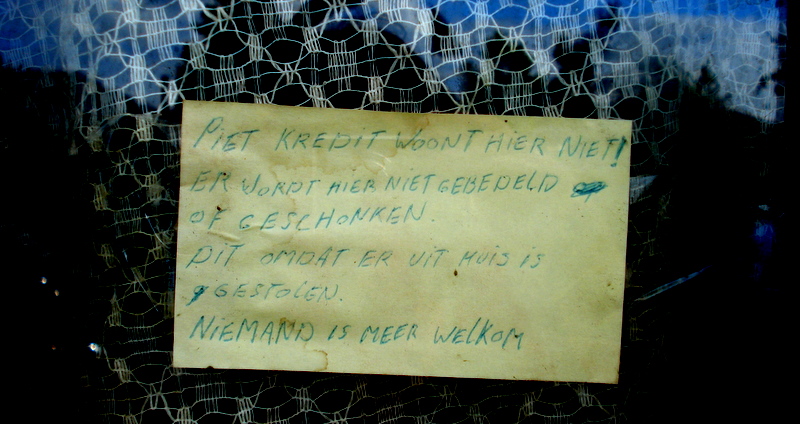 PIET KREDIT WOONT HIER NIET!
ER WORDT HIER NIET GEBEDELD
OF GESCHONKEN.
DIT OMDAT ER UIT HUIS IS
GESTOLEN.
NIEMAND IS MEER WELKOM